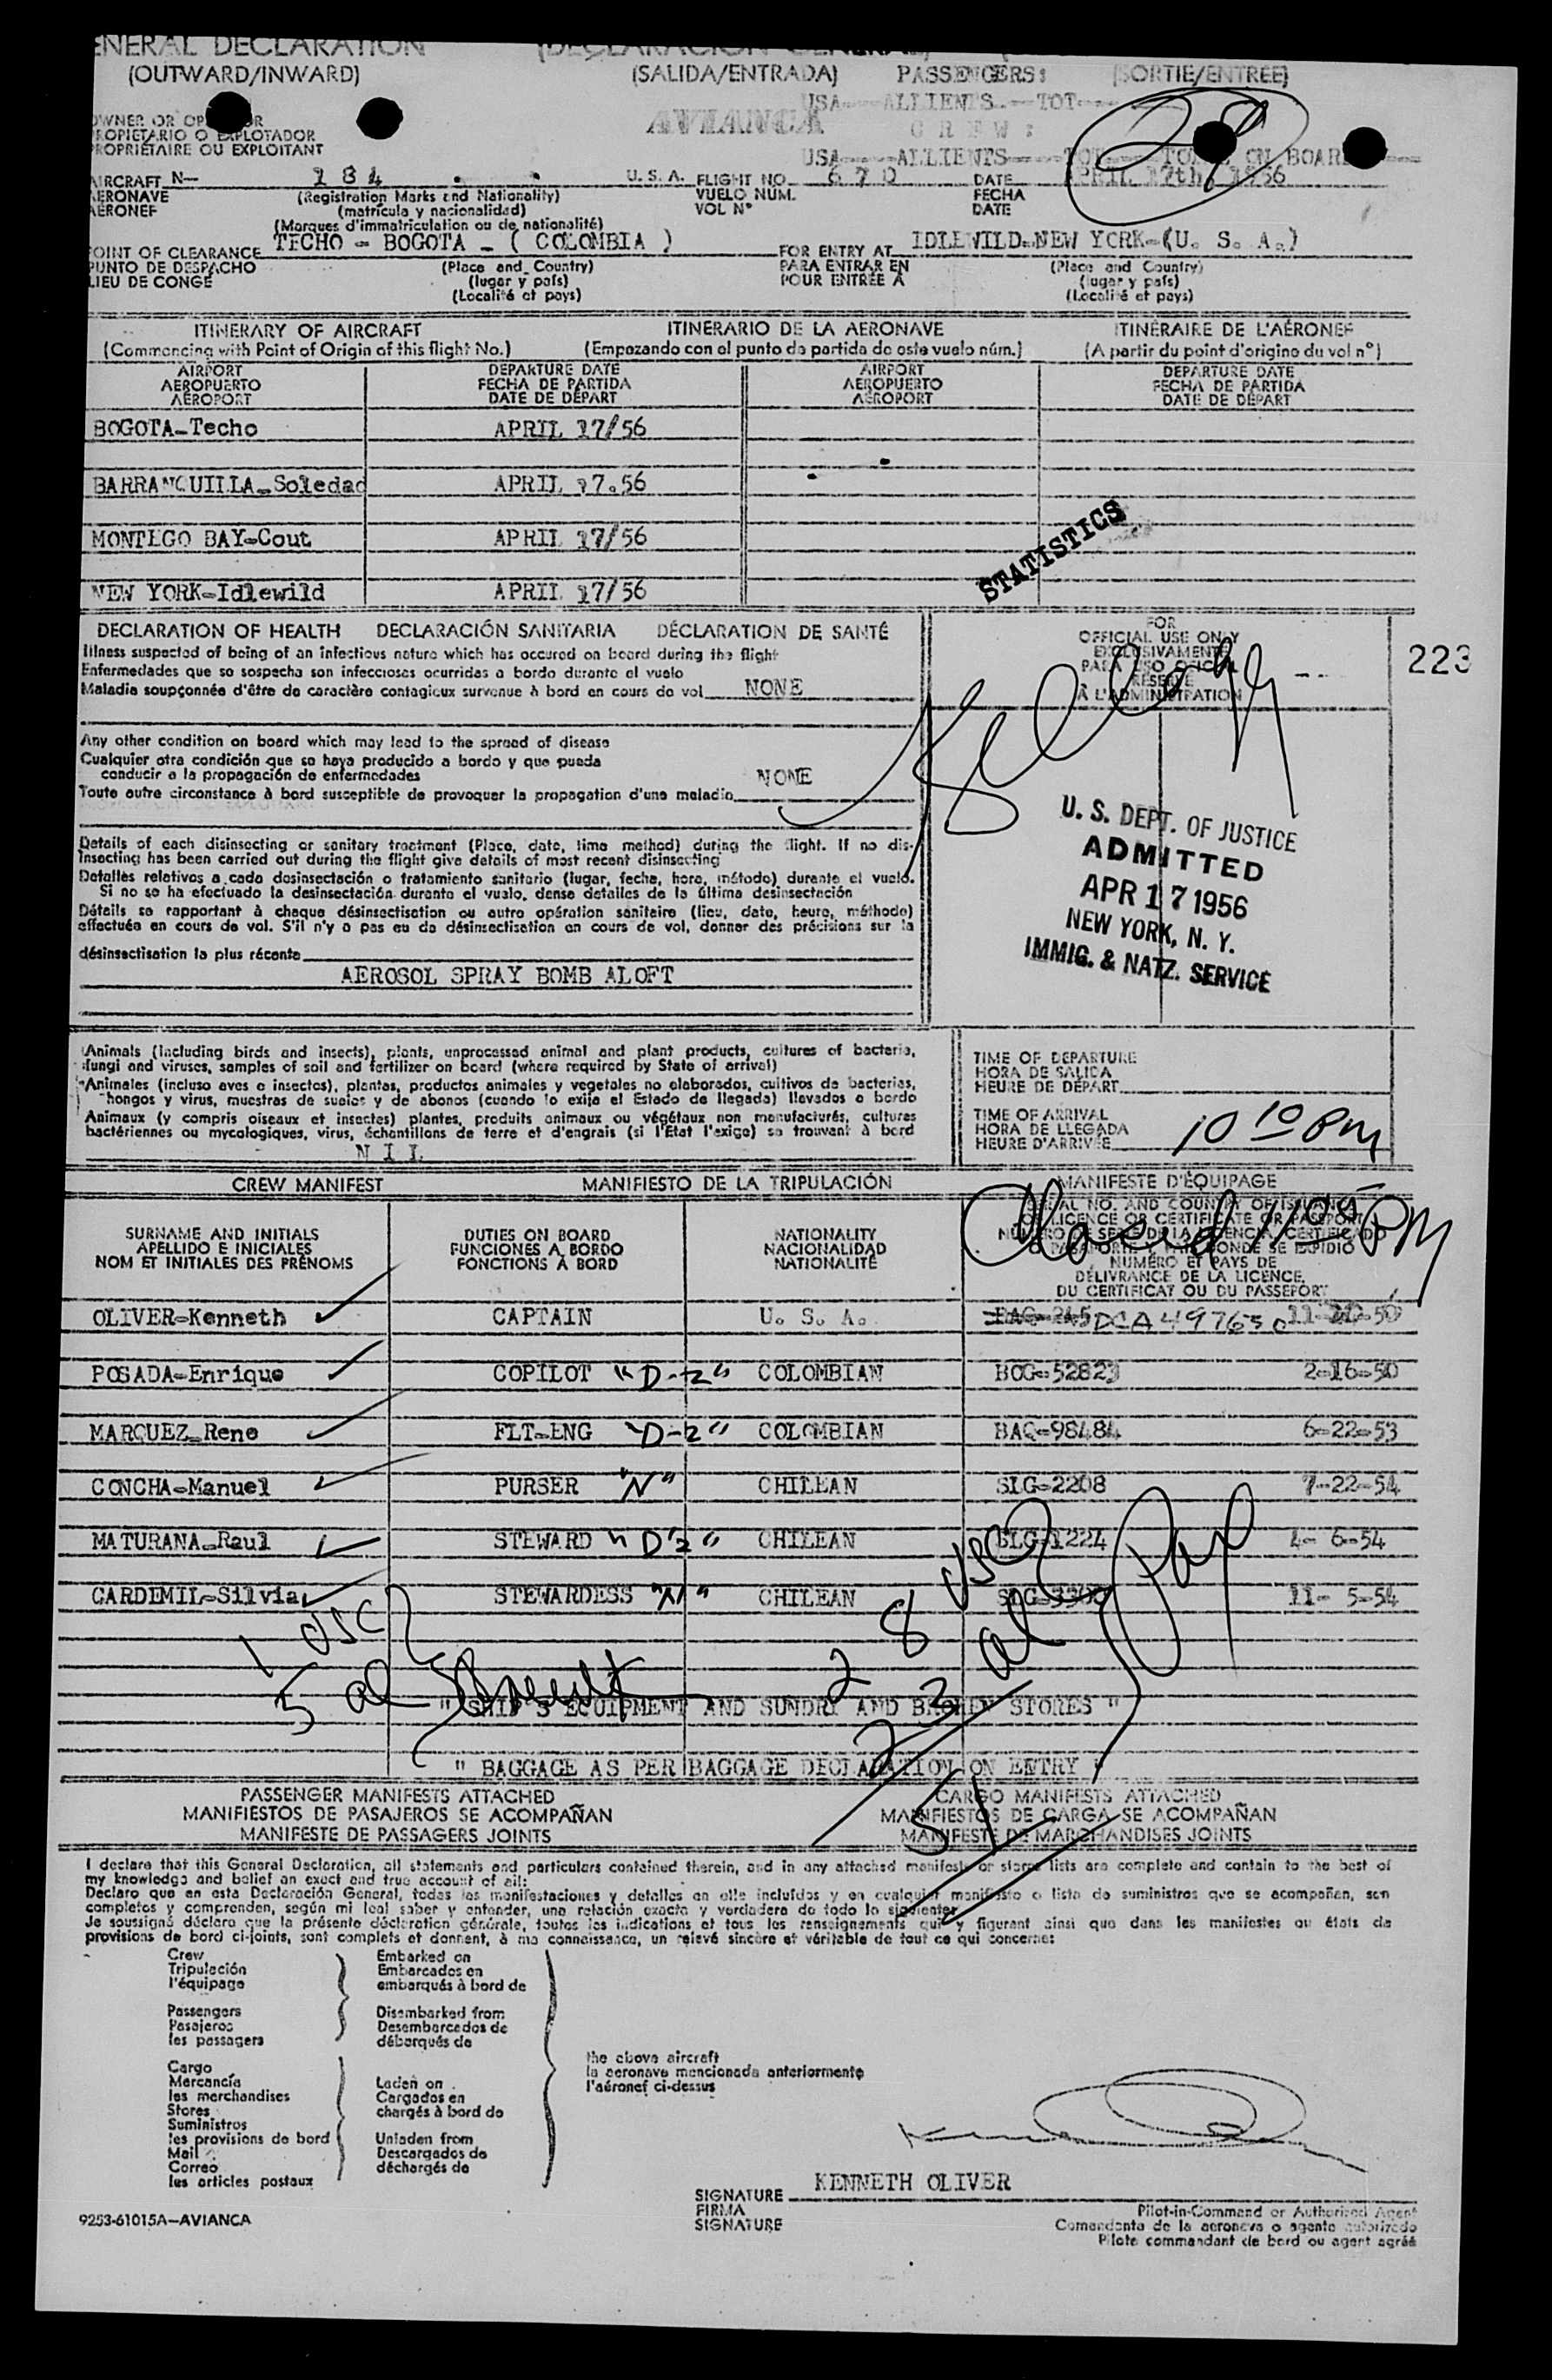 GENERAL DECLARATION (DECLARACIÓN GENERAL)
(OUTWARD/INWARD) (SALIDA/ENTRADA) PASSENGERS: (SORTIE/ENTRÉE)
USA---ALLIENTS---TOT---
OWNER OR OPERATOR AVIANCA CREW:
PROPIETARIO O EXPLOTADOR
PROPRIÉTAIRE OU EXPLOITANT
USA----ALLIENTS----TOT----TOTAL ON BOARD---
AIRCRAFT N- 184 U. S. A. FLIGHT NO. 670 DATE APRIL 17th, 1956
AERONAVE (Registration Marks and Nationality) VUELO NUM. FECHA
AÉRONEF (matrícula y nacionalidad) VOL N° DATE
(Marques d'immatriculation ou de nationalité)
POINT OF CLEARANCE TECHO - BOGOTA - ( COLOMBIA ) FOR ENTRY AT IDLEWILD-NEW YORK-(U. S. A.)
PUNTO DE DESPACHO (Place and Country) PARA ENTRAR EN (Place and Country)
LIEU DE CONGÉ (lugar y país) POUR ENTRÉE A (lugar y país)
(Localité et pays) (Localité et pays)
ITINERARY OF AIRCRAFT ITINERARIO DE LA AERONAVE ITINÉRAIRE DE L'AÉRONEF
(Commencing with Point of Origin of this flight No.) (Empezando con el punto de partida de este vuelo núm.) (A partir du point d'origine du vol n°)
AIRPORT DEPARTURE DATE AIRPORT DEPARTURE DATE
AEROPUERTO FECHA DE PARTIDA AEROPUERTO FECHA DE PARTIDA
AÉROPORT DATE DE DÉPART AÉROPORT DATE DE DÉPART
BOGOTA-Techo APRIL 17/56
BARRANQUILLA-Soledad APRIL 17.56
MONTEGO BAY-Cout APRIL 17/56
STATISTICS
NEW YORK-Idlewild APRIL 17/56
DECLARATION OF HEALTH DECLARACIÓN SANITARIA DÉCLARATION DE SANTÉ
FOR
OFFICIAL USE ONLY
EXCLUSIVAMENTE
PARA USO OFICIAL
RÉSERVÉ
À L'ADMINISTRATION
223
Illness suspected of being of an infectious nature which has occured on board during the flight
Enfermedades que se sospecha son infecciosas ocurridas a bordo durante el vuelo
Maladie soupçonnée d'être de caractère contagieux survenue à bord en cours de vol NONE
Any other condition on board which may lead to the spread of disease
Cualquier otra condición que se haya producido a bordo y que pueda
conducir a la propagación de enfermedades
Toute autre circonstance à bord susceptible de provoquer la propagation d'une maladie NONE
U. S. DEPT. OF JUSTICE
ADMITTED
APR 17 1956
NEW YORK, N. Y.
IMMIG. & NATZ. SERVICE
Details of each disinsecting or sanitary treatment (Place, date, time method) during the flight. If no dis-
insecting has been carried out during the flight give details of most recent disinsecting
Detalles relativos a cada desinsectación o tratamiento sanitario (lugar, fecha, hora, método) durante el vuelo.
Si no se ha efectuado la desinsectación durante el vuelo, dense detalles de la última desinsectación
Détails se rapportant à chaque désinsectisation ou autre opération sanitaire (lieu, date, heure, méthode)
effectuée en cours de vol. S'il n'y a pas eu de désinsectisation en cours de vol, donner des précisions sur la
désinsectisation la plus récente
AEROSOL SPRAY BOMB ALOFT
Animals (including birds and insects), plants, unprocessed animal and plant products, cultures of bacteria,
fungi and viruses, samples of soil and fertilizer on board (where required by State of arrival)
Animales (incluso aves e insectos), plantas, productos animales y vegetales no elaborados, cultivos de bacterias,
hongos y virus, muestras de suelos y de abonos (cuando lo exija el Estado de llegada) llevados a bordo
Animaux (y compris oiseaux et insectes) plantes, produits animaux ou végétaux non manufacturés, cultures
bactériennes ou mycologiques, virus, échantillons de terre et d'engrais (si l'Etat l'exige) se trouvant à bord
N I L
TIME OF DEPARTURE
HORA DE SALIDA
HEURE DE DÉPART
TIME OF ARRIVAL
HORA DE LLEGADA
HEURE D'ARRIVÉE 10 10 PM
CREW MANIFEST MANIFIESTO DE LA TRIPULACIÓN MANIFESTE D'ÉQUIPAGE
SURNAME AND INITIALS DUTIES ON BOARD NATIONALITY
APELLIDO E INICIALES FUNCIONES A BORDO NACIONALIDAD
NOM ET INITIALES DES PRÉNOMS FONCTIONS À BORD NATIONALITÉ
SERIAL NO. AND COUNTRY OF ISSUANCE
OF LICENCE OR CERTIFICATE OR PASSPORT
NUMÉRO ET PAYS DE
DÉLIVRANCE DE LA LICENCE,
DU CERTIFICAT OU DU PASSEPORT
PM
OLIVER-Kenneth CAPTAIN U. S. A. BAG-245 DCA 497650
POSADA-Enrique COPILOT "D-2" COLOMBIAN BOG-52823 2-16-50
MARQUEZ-Rene FLT-ENG "D-2" COLOMBIAN BAQ-98484 6-22-53
CONCHA-Manuel PURSER "N" CHILEAN SLG-2208 7-22-54
MATURANA-Raul STEWARD "D-2" CHILEAN SLG-1224 4- 6-54
CARDEMIL-Silvia STEWARDESS "N" CHILEAN 11- 5-54
1 USC
5 al
28 USC
23 al
51
" SHIP'S EQUIPMENT AND SUNDRY AND BROKEN STORES "
" BAGGAGE AS PER BAGGAGE DECLARATION ON ENTRY "
PASSENGER MANIFESTS ATTACHED CARGO MANIFESTS ATTACHED
MANIFIESTOS DE PASAJEROS SE ACOMPAÑAN MANIFIESTOS DE CARGA SE ACOMPAÑAN
MANIFESTE DE PASSAGERS JOINTS MANIFESTE DE MARCHANDISES JOINTS
I declare that this General Declaration, all statements and particulars contained therein, and in any attached manifests or stores lists are complete and contain to the best of
my knowledge and belief an exact and true account of all:
Declaro que en esta Declaración General, todas las manifestaciones y detalles en elle incluídos y en cualquier manifiesto o lista de suministros que se acompañan, son
completos y comprenden, según mi leal saber y entender, una relación exacta y verdadera de todo lo siguiente:
Je soussigné déclare que la présente déclaration générale, toutes les indications et tous les renseignements qui y figurent ainsi que dans les manifestes ou états de
provisions de bord ci-joints, sont complets et donnent, à ma connaissance, un relevé sincère et véritable de tout ce qui concerne:
Crew Embarked on
Tripulación Embarcados en
l'équipage embarqués à bord de
Passengers Disembarked from
Pasajeros Desembarcados de
les passagers débarqués de
the above aircraft
la aeronave mencionada anteriormente
l'aéronef ci-dessus
Cargo
Mercancía Laden on
les merchandises Cargados en
Stores chargés à bord de
Suministros
les provisions de bord Unladen from
Mail Descargados de
Correo déchargés de
les articles postaux
SIGNATURE KENNETH OLIVER
FIRMA Pilot-in-Command or Authorized Agent
SIGNATURE Comandante de la aeronave o agente autorizado
Pilote commandant de bord ou agent agréé
9253-61015A—AVIANCA